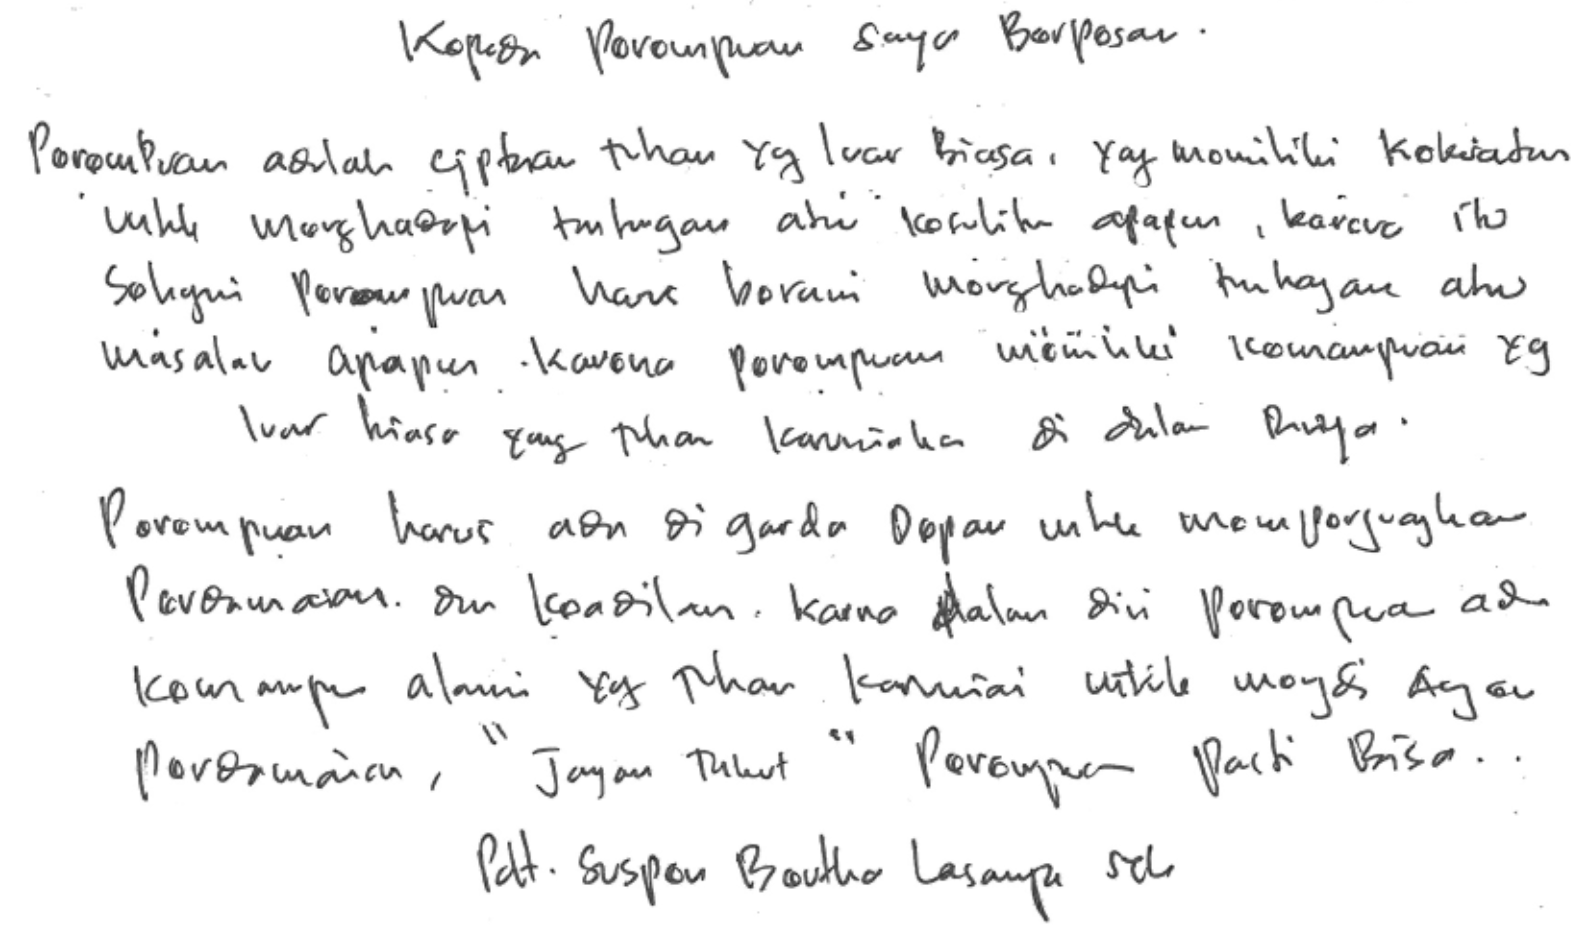 Kepada Perempuan saya Berpesan.
Perempuan adalah ciptaan tuhan yg luar Biasa, yag memiliki kekuatan
untuk menghadapi tantangan atau kesulitan apapun, karena itu
Sebagai Perempuan harus berani menghadapi tantangan atau
masalah apapun. Karena perempuan memiliki kemampuan yg
luar biasa yang Tuhan karuniakan di dalam Dirinya.
Perempuan harus ada di garda Depan untuk memperjuangkan
Perdamaian. dan Keadilan. Karna dalam diri Perempuan ada
kemampuan alami yg Tuhan karuniai untuk menjadi Agen
Perdamaian, "Jangan Takut" Perempuan pasti Bisa..
Pdt.